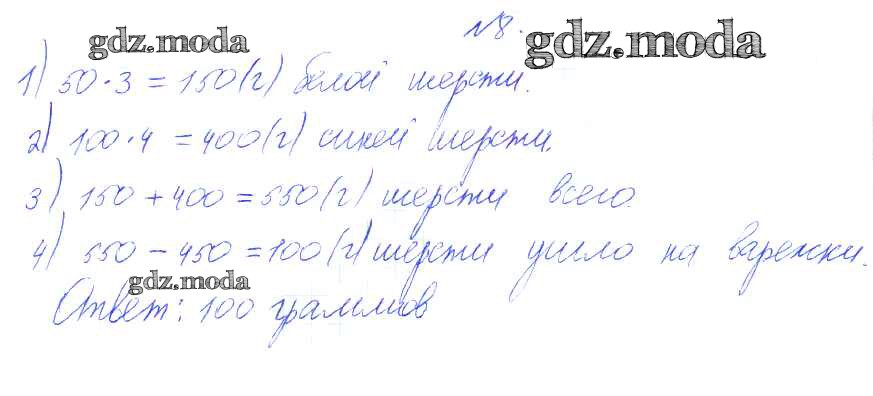 №8.
gdz.moda gdz.moda
1) 50·3 = 150(г) белой шерсти.
2) 100·4 = 400(г) синей шерсти.
3) 150 + 400 = 550(г) шерсти всего.
4) 550 − 450 = 100(г) шерсти ушло на варежки.
gdz.moda
Ответ: 100 граммов